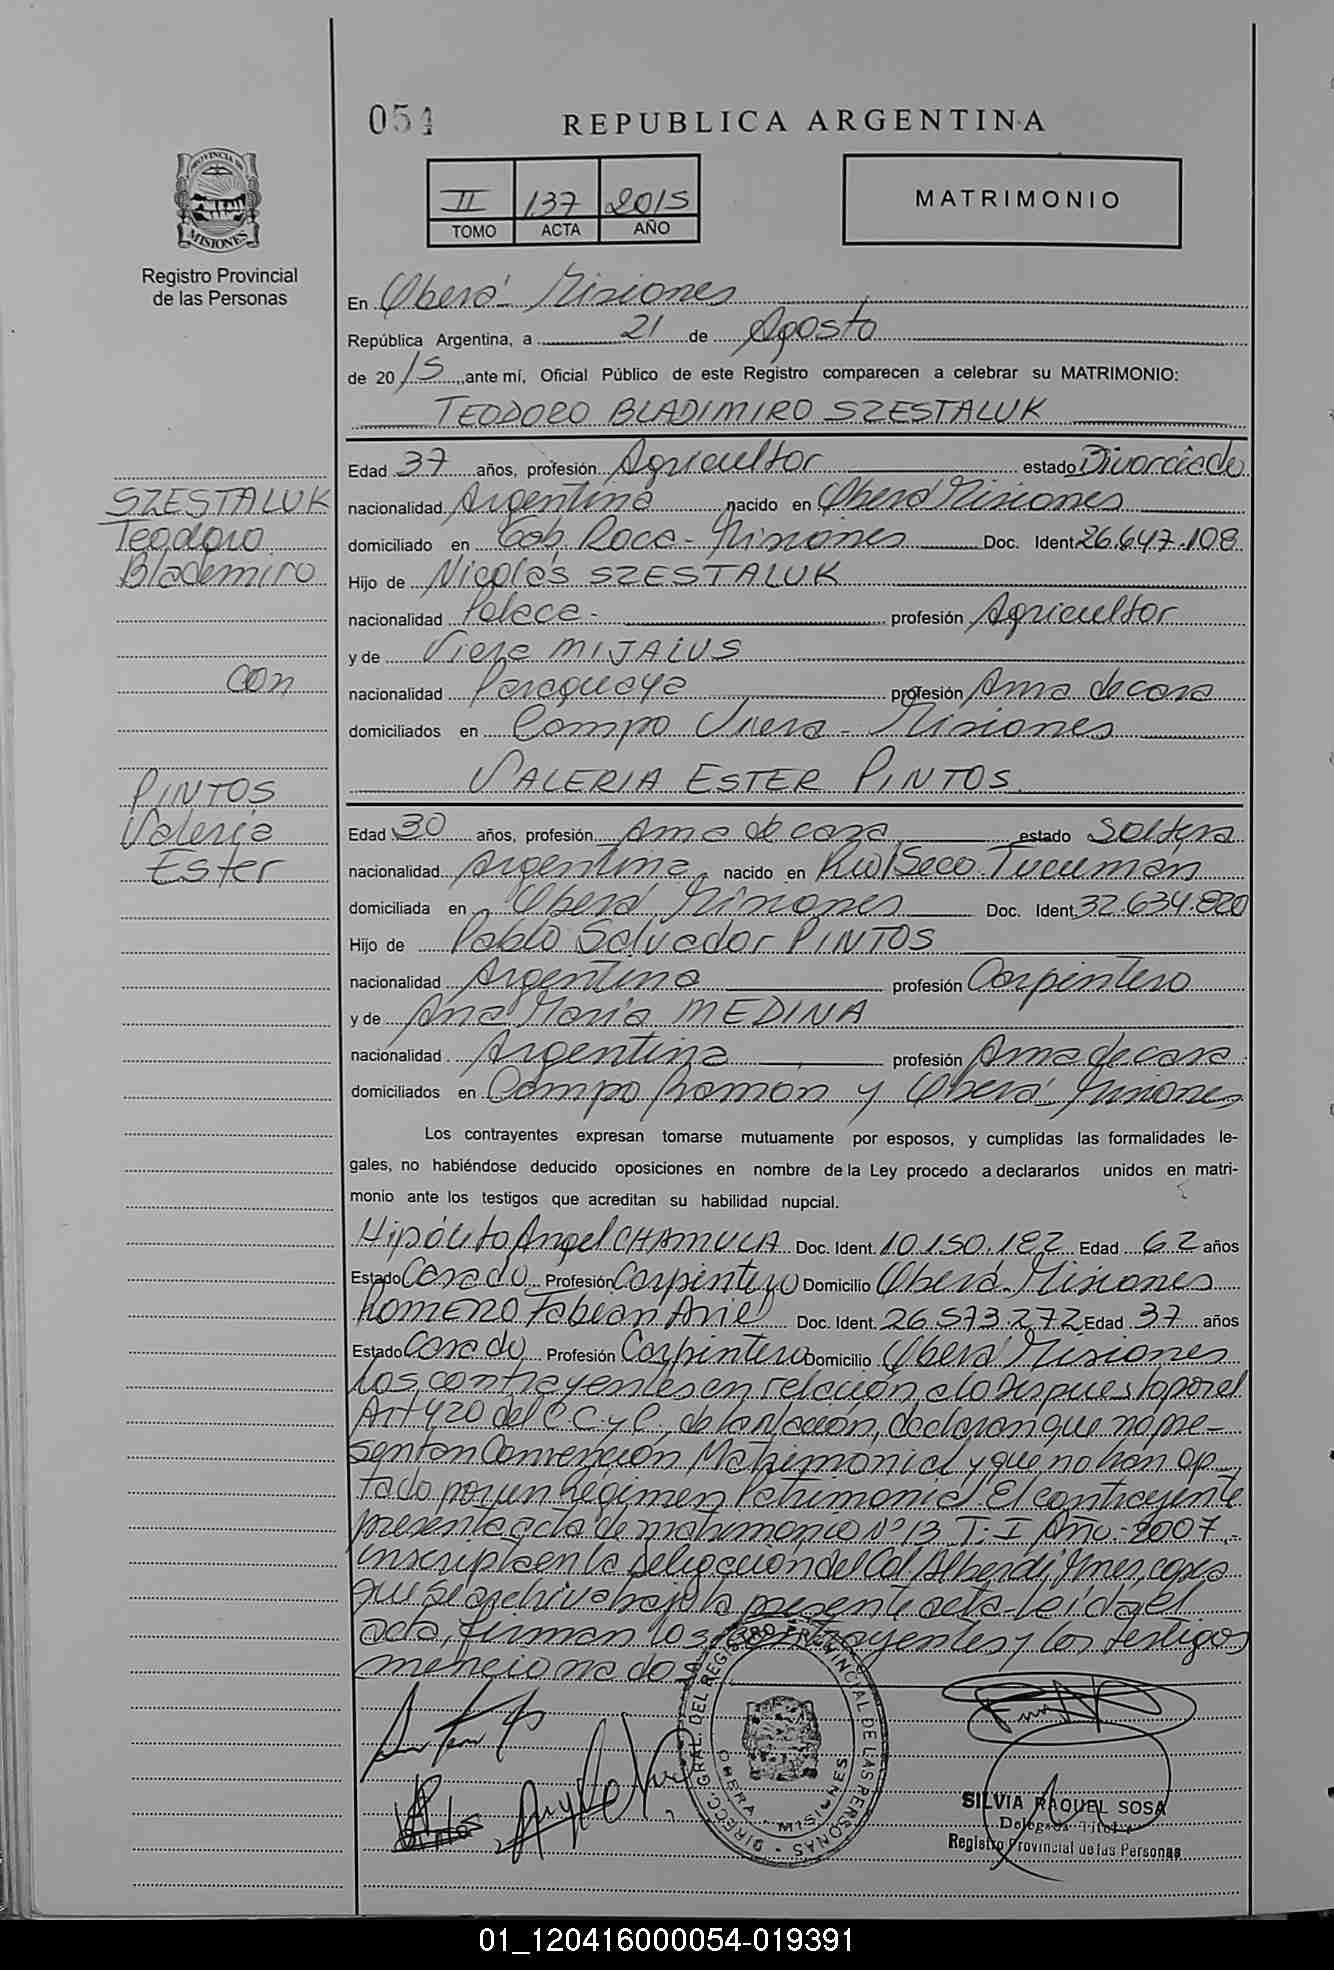 054
REPUBLICA ARGENTINA
PROVINCIA DE
MISIONES
Registro Provincial
de las Personas
II 137 2015
TOMO ACTA AÑO
MATRIMONIO
En Oberá - Misiones
República Argentina, a 21 de Agosto
de 2015, ante mí, Oficial Público de este Registro comparecen a celebrar su MATRIMONIO:
TEODORO BLADIMIRO SZESTALUK
Edad 37 años, profesión Agricultor estado Divorciado
SZESTALUK
Teodoro
Blademiro
con
PINTOS
Valeria
Ester
nacionalidad Argentina nacido en Oberá Misiones
domiciliado en Gob. Roca - Misiones Doc. Ident 26.647.108
Hijo de Nicolás SZESTALUK
nacionalidad Polaca - profesión Agricultor
y de Viera MIJALUS
nacionalidad Paraguaya profesión Ama de casa
domiciliados en Campo Viera - Misiones
VALERIA ESTER PINTOS
Edad 30 años, profesión Ama de casa estado Soltera
nacionalidad Argentina nacido en Río Seco Tucumán
domiciliada en Oberá Misiones Doc. Ident. 32.634.820
Hijo de Pablo Salvador PINTOS
nacionalidad Argentina profesión Carpintero
y de Ana María MEDINA
nacionalidad Argentina profesión Ama de casa
domiciliados en Campo Ramon y Oberá - Misiones
Los contrayentes expresan tomarse mutuamente por esposos, y cumplidas las formalidades le-
gales, no habiéndose deducido oposiciones en nombre de la Ley procedo a declararlos unidos en matri-
monio ante los testigos que acreditan su habilidad nupcial.
Hipólito Angel CHAMULA Doc. Ident. 10.150.182 Edad 62 años
Estado Casado Profesión Carpintero Domicilio Oberá - Misiones
ROMERO Fabian Ariel Doc. Ident. 26.573.272 Edad 37 años
Estado Casado Profesión Carpintero Domicilio Oberá Misiones
Los contrayentes en relación a lo dispuesto por el
Art 420 del C.C. y C. de la Nación, declaran que no pre-
sentan Convención Matrimonial y que no han op
tado por un Régimen Patrimonial El contrayente
presenta acta de matrimonio Nº 13 T: I Año - 2007 -
inscripta en la Delegación del Col Alberdi, Mnes, copia
que se archiva bajo la presente acta - leída el
acta, firman los contrayentes y los testigos
mencionados
DIRECC. GRAL. DEL REGISTRO PROVINCIAL DE LAS PERSONAS
OBERA - MISIONES
SILVIA RAQUEL SOSA
Delegada Titular
Registro Provincial de las Personas
01_120416000054-019391